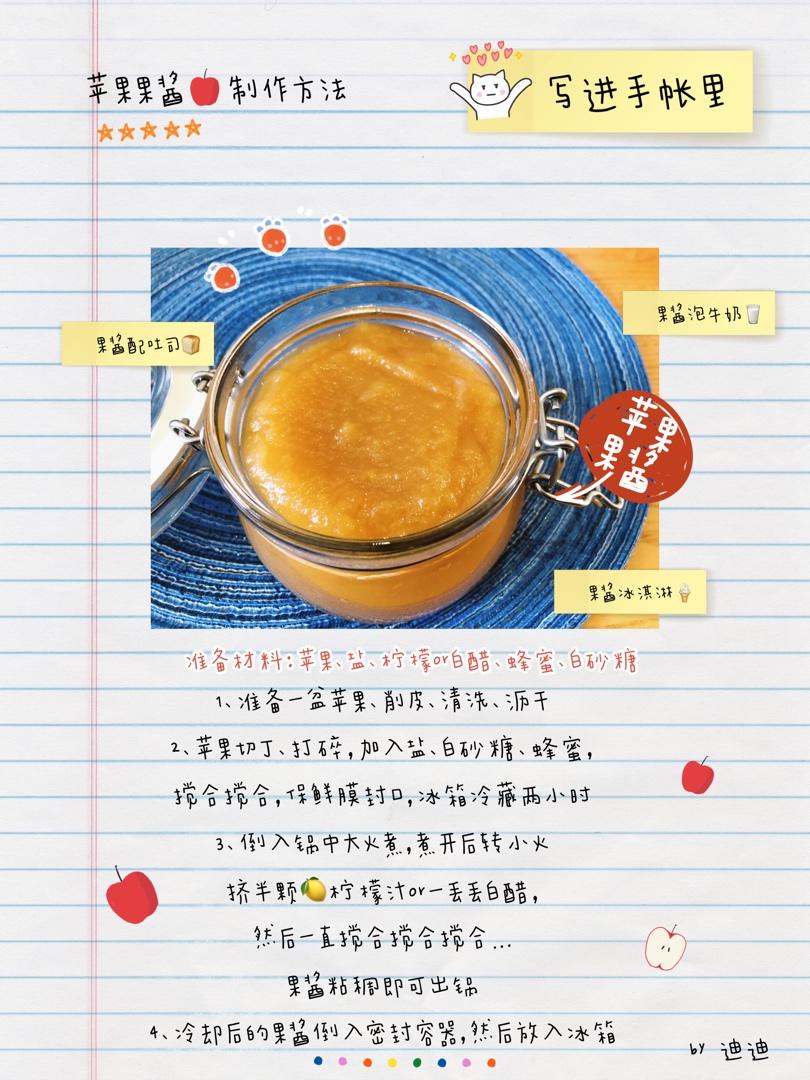 苹果果酱🍎制作方法
写进手帐里
果酱配吐司🍞
果酱泡牛奶🥛
苹果
果酱
果酱冰淇淋🍦
准备材料:苹果、盐、柠檬or白醋、蜂蜜、白砂糖
1、准备一盆苹果、削皮、清洗、沥干
2、苹果切丁、打碎,加入盐、白砂糖、蜂蜜,
搅合搅合,保鲜膜封口,冰箱冷藏两小时
3、倒入锅中大火煮,煮开后转小火
挤半颗🍋柠檬汁or一丢丢白醋,
然后一直搅合搅合搅合...
果酱粘稠即可出锅
4、冷却后的果酱倒入密封容器,然后放入冰箱
by 迪迪